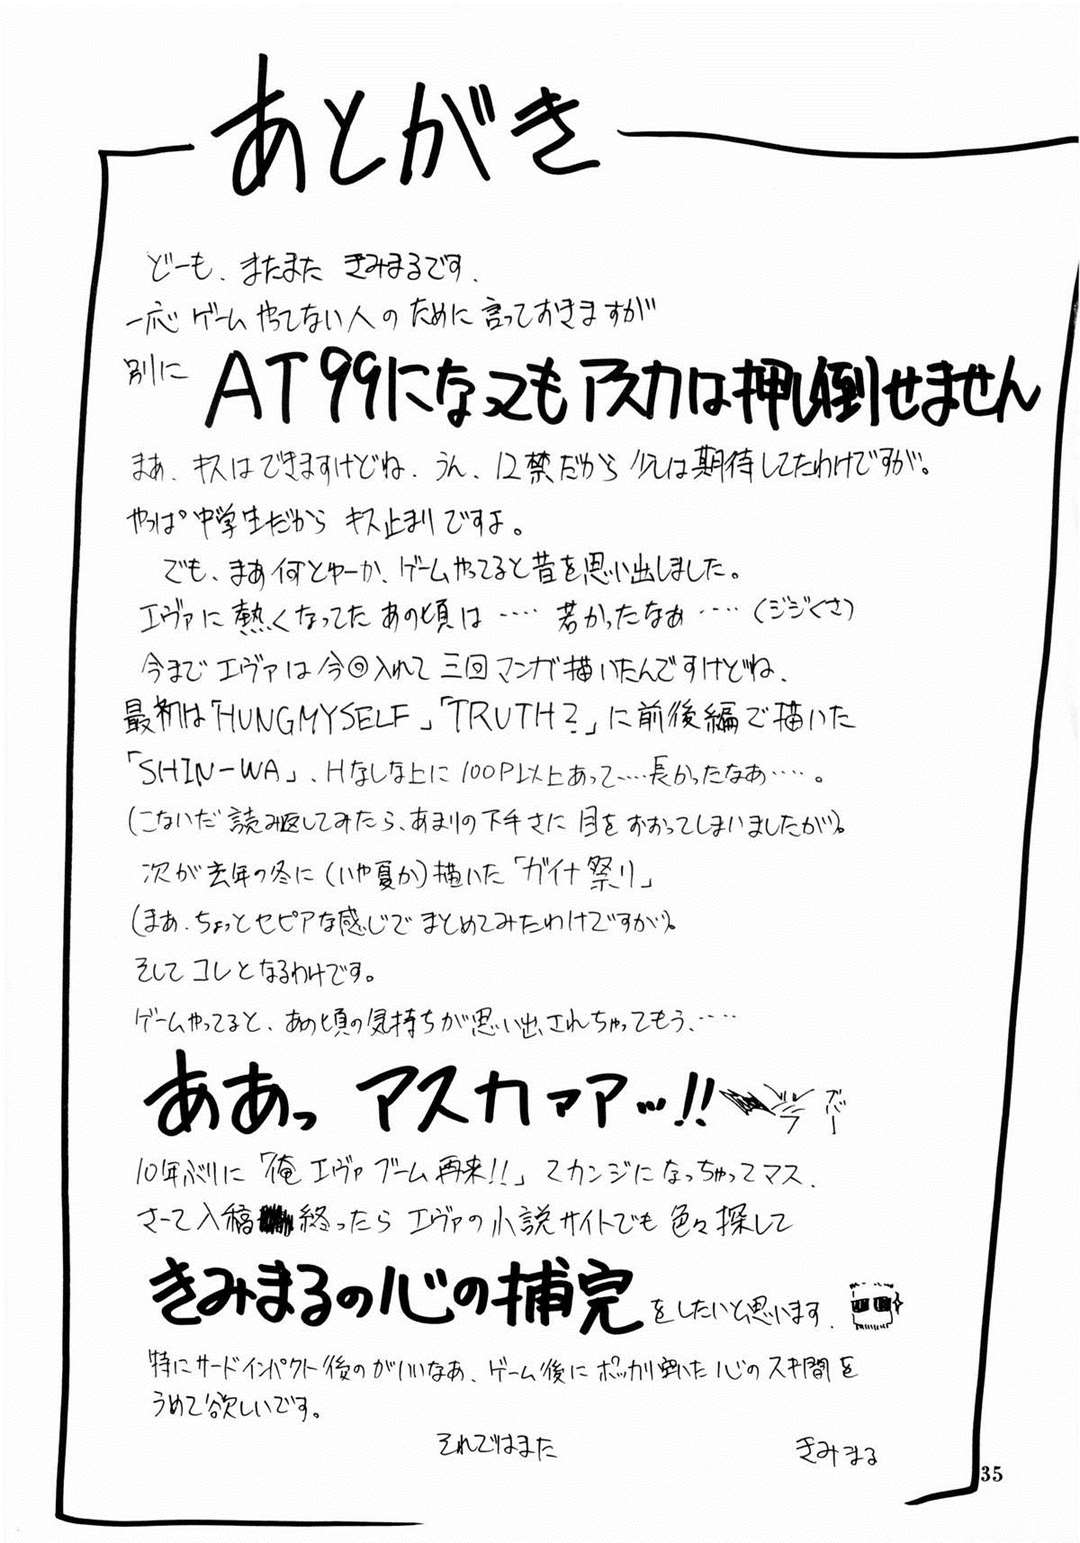 あとがき
どーも、またまた きみまるです.
一応 ゲームやってない人の ために 言っておきますが
別に AT99になってもアスカは押し倒せません
まあ、キスはできますけどね、うん、12禁だから 少しは期待してたわけですが。
やっぱ中学生だから キス止まりですよ。
でも、まあ何とゆーか、ゲームやってると昔を思い出しました。
エヴァに熱くなってた あの頃は‥‥ 若かったなあ‥‥(ジジくさ)
今まで エヴァは今回入れて 三回マンガ描いたんですけどね、
最初は「HUNGMYSELF」「TRUTH?」に前後編で描いた
「SHIN-WA」、Hなしな上に100P以上あって‥‥長かったなあ‥‥。
(こないだ 読み返してみたら、あまりの下手さに 目をおおってしまいましたが)。
次が去年の冬に(いや夏か)描いた「ガイナ祭り」
(まあ、ちょっとセピアな感じで まとめてみたわけですが)。
そして コレとなるわけです。
ゲームやってると、あの頃の気持ちが思い出されちゃってもう、‥‥
ああっ アスカァア…!!
10年ぶりに「俺 エヴァ ブーム 再来!!」ってカンジになっちゃってマス.
さーて入稿 終ったら エヴァの小説サイトでも 色々探して
きみまるの心の補完をしたいと思います.
特にサードインパクト後のがいいなあ、ゲーム後にポッカリ開いた心のスキ間を
うめて欲しいです。
それではまた
きみまる
35